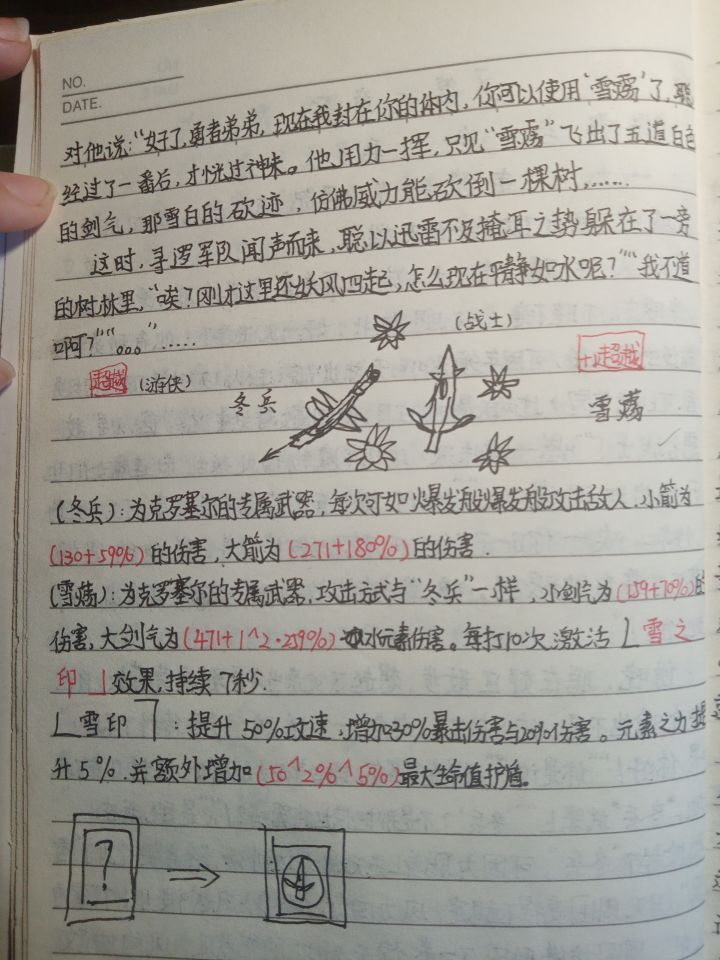 NO.
DATE.
对他说：“好了，勇者弟弟，现在我封在你的体内，你可以使用‘雪荡’了，聪
经过了一番后，才恍过神来。他用力一挥，只见“雪荡”飞出了五道白色
的剑气，那雪白的砍迹，仿佛威力能砍倒一棵树，……
这时，寻逻军队闻声而来，聪以迅雷不及掩耳之势躲在了一旁
的树林里，“唉？刚才这里还妖风四起，怎么现在平静如水呢？”“我不道
啊？”“。。。”……
(战士)
超越 (游侠)
+1超越
冬兵
雪荡
(冬兵)：为克罗塞尔的专属武器，每次可如火爆发般爆发般攻击敌人，小箭为
(130+59%)的伤害，大箭为(271+180%)的伤害.
(雪荡)：为克罗塞尔的专属武器，攻击方式与“冬兵”一样，小剑气为(159+70%)的
伤害，大剑气为(471+1^2·259%)水元素伤害。每打10次，激活「雪之
印」效果，持续7秒.
「雪印」：提升50%攻速，增加30%暴击伤害与20%伤害。元素之力提
升5%.并额外增加(50^2%^5%)最大生命值护盾。
?